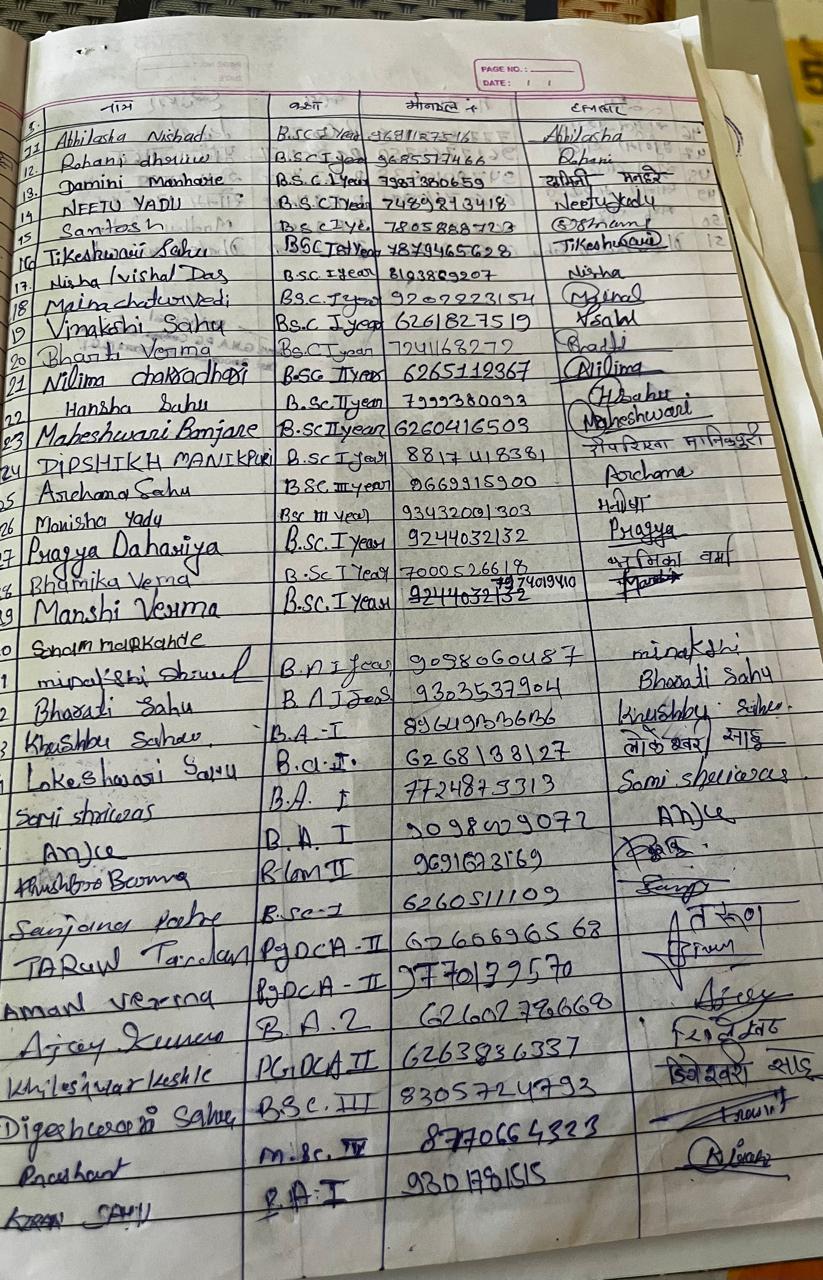 PAGE NO.:
DATE: / /
नाम कक्षा मोबाइल नं हस्ताक्षर
11 Abhilasha Nishad B.SC I Year 9691127516 Abhilasha
12. Rohani dhruw B.SC I year 9685517466 Rohani
13. Damini Manhare B.S.C. I year 7987380659 दामिनी मनहरे
14 NEETU YADU B.S.C I Year 7489813418 Neetu yadu
15 Santosh B.S.C I Ye. 7805888723
16 Tikeshwari Sahu BSC Ist Year 7879465628 Tikeshwari
17. Nisha / vishal Das B.S.C. I year 8103869207 Nisha
18 Maina chaturvedi BS.C. I year 9202223154
19 Vinakshi Sahu BS.C I year 6261827519
20 Bharti Verma BSC I year 7241168272 Bharti
21 Nilima chakradhari B.SC II Year 6265112367 Nilima
22 Hansha Sahu B.Sc II year 7999380093 H.sahu
23 Maheshwari Banjare B.Sc II year 6260416503 Maheshwari
24 DIPSHIKH MANIKPURI B.SC I year 8817418381 दीपशिखा मानिकपुरी
25 Archana Sahu BSC. III year 9669915900 Archana
26 Manisha yadu BSC III year 93432001303 मनीषा
27 Pragya Dahariya B.Sc. I Year 9244032132 Pragya
28 Bhamika Verma B.Sc I Year 7000526618 भूमिका वर्मा
29 Manshi Verma B.SC. I Year 9244032132 7974019410
0 Sonam markande
1 minakshi dhruw B.A I year 9098060487 minakshi
2 Bharati Sahu B.A I year 9303537904 Bharati Sahu
3 Khushbu Sahu B.A-I 8964933636 Khushbu Sahu.
Lokeshwari Sahu B.A. I. 6268138127 लोकेश्वरी साहू
Somi shriwas B.A. I 7724873313 Somi shriwas.
Anju B.A. I 9098409072 Anju
Khushboo Barma B.Com II 9691673169
Sanjana patre B.Sc-I 6260511109
TARUN Tandan PgDCA-II 6260696568 तरुण
AMAN Verma PgDCA-II 9770139570
Ajay Kumar B.A. 2 6260278668 Ajay
Khileshwar keshle PGDCA II 6263836337
Digeshwari Sahu BSC. III 8305724793 डिगेश्वरी साहू
Prashant M.Sc. IV 8770664323
KIRAN SAHU B.A.I 9301781515 Kiran